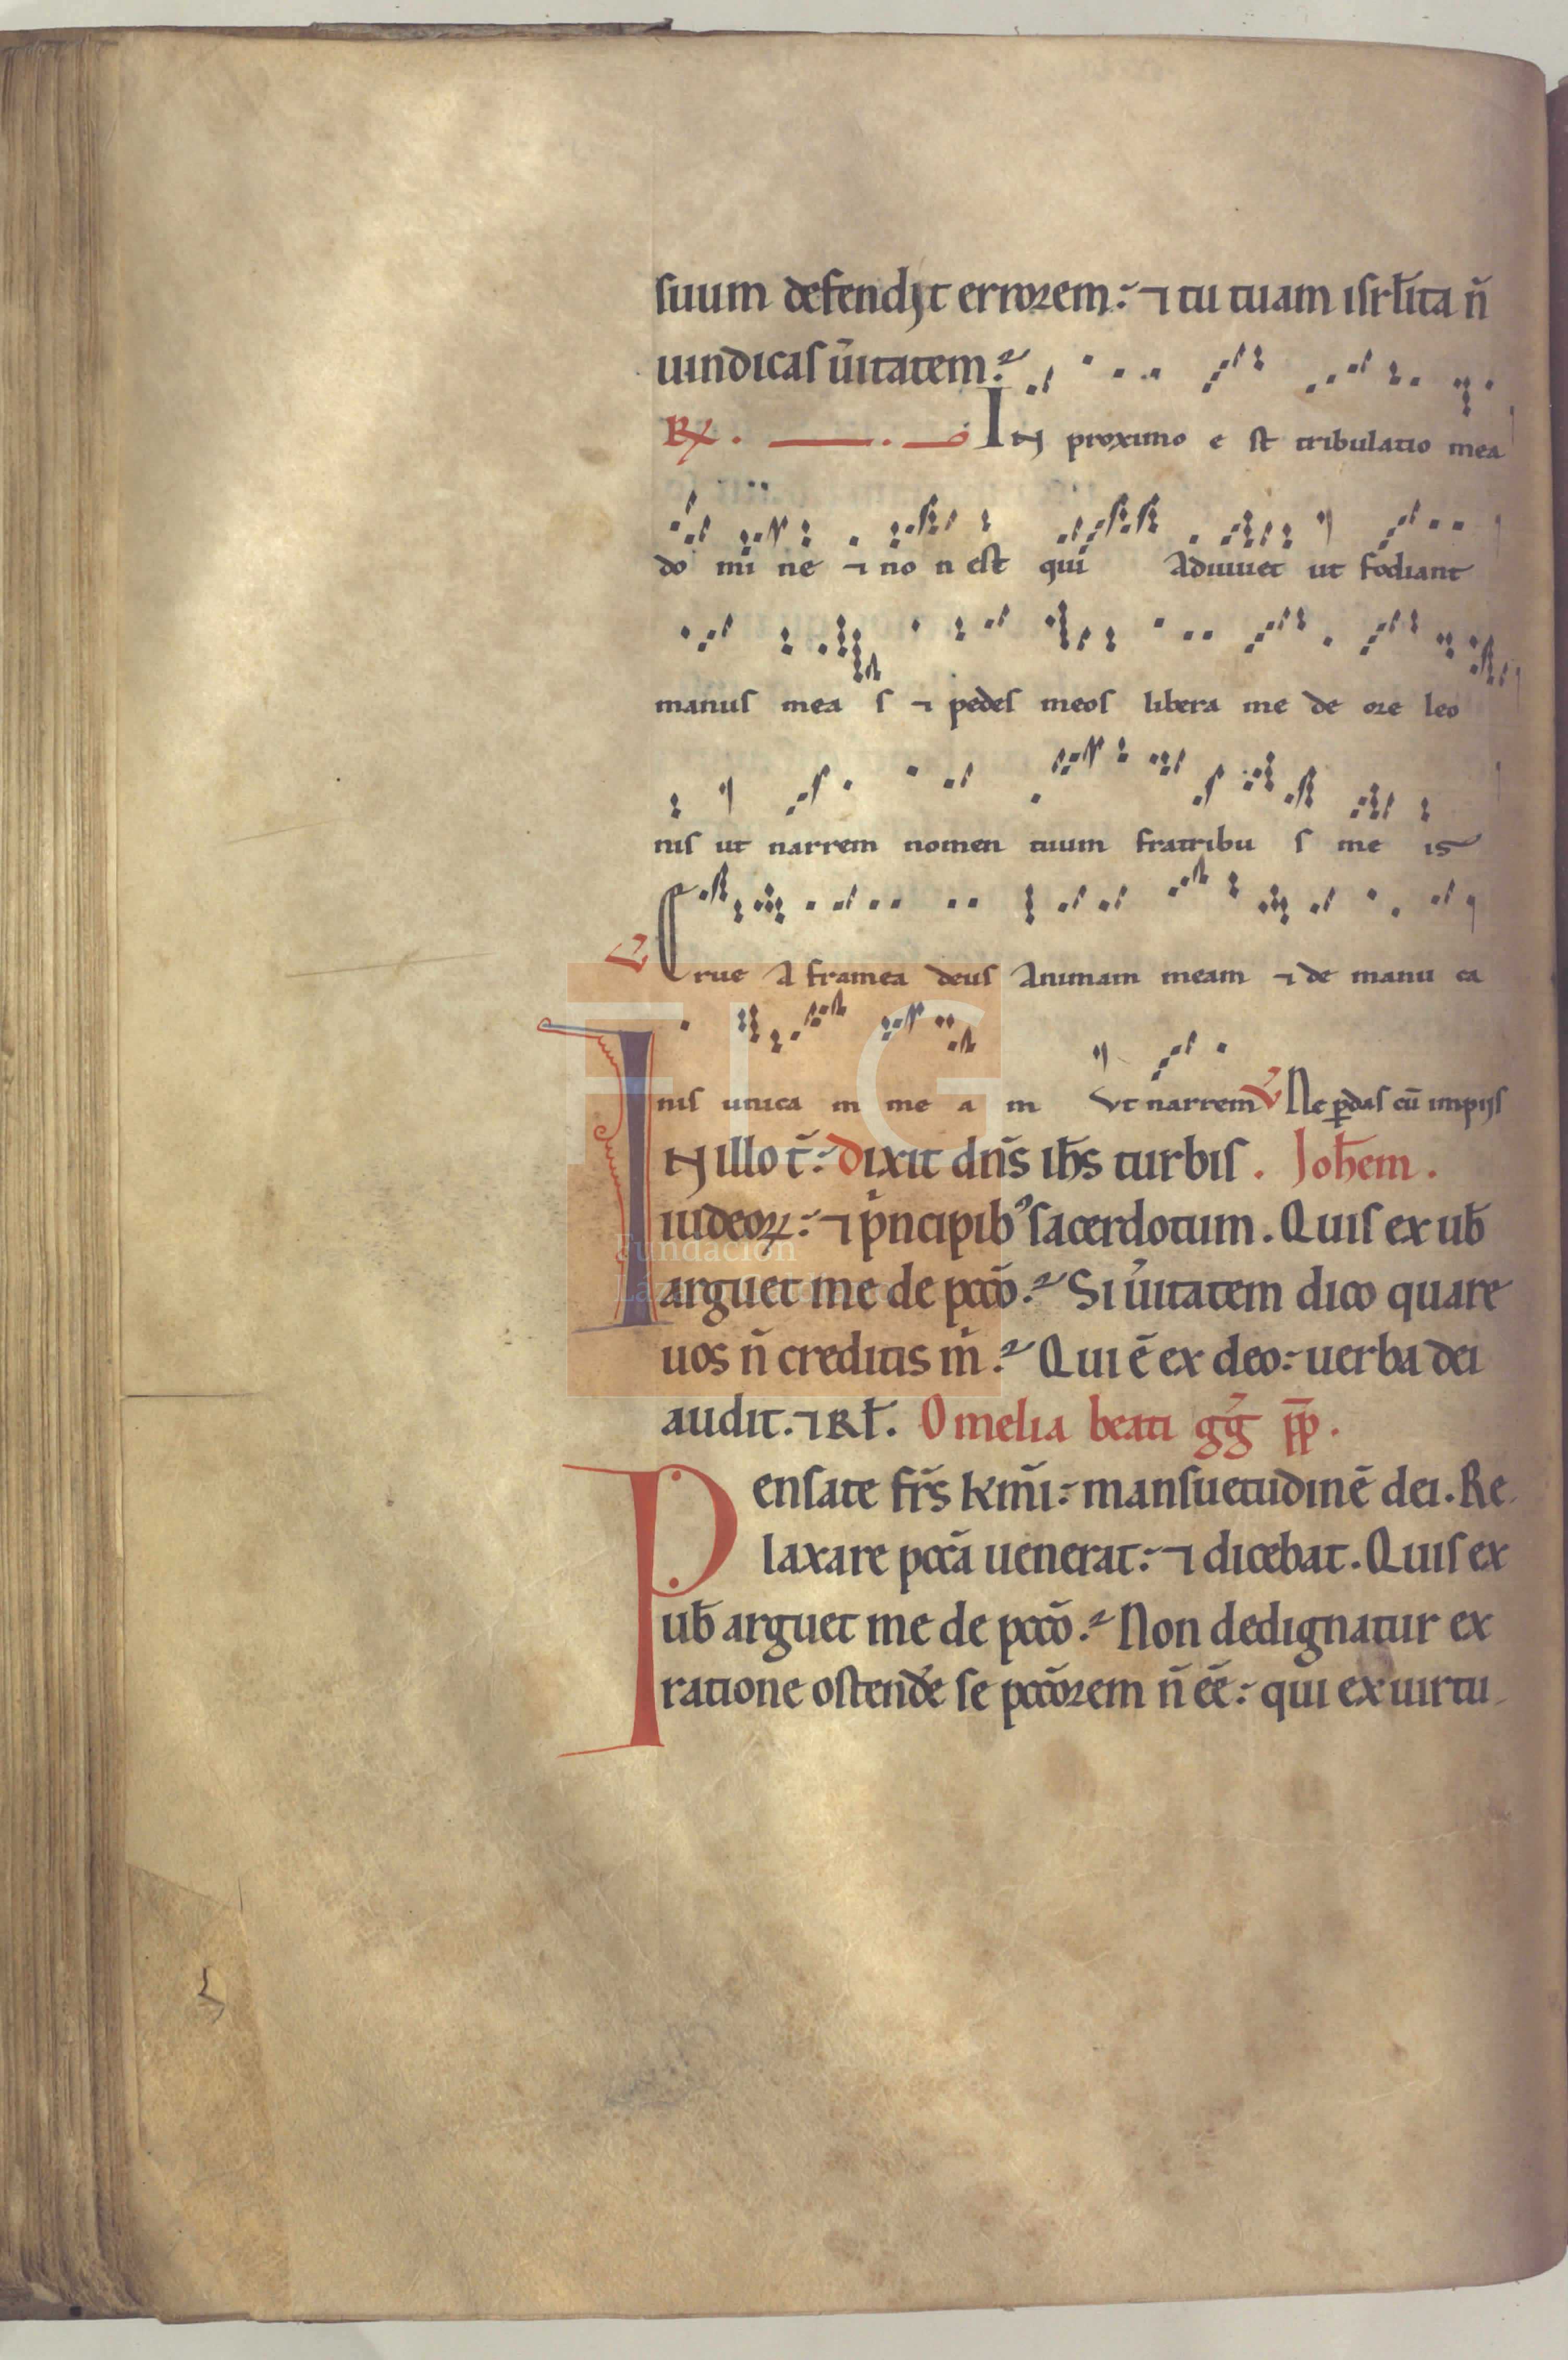 suum defendit errorem: ⁊ tu tuam isrl̄ita n̄
uindicas u̅itatem?
R̸. IN proximo e st tribulatio mea
do mi ne ⁊ no n est qui Adiuuet ut fodiant
manus mea s ⁊ pedes meos libera me de ore leo
nis ut narrem nomen tuum fratribu s me is
V Erue A framea deus Animam meam ⁊ de manu ca
nis unica m me a m Vt narrem V Ne p̲das cū impijs
IN illo t̄: Dixit dn̄s ih̄s turbis. Joh̄em.
iudeoꝝ: ⁊ pͥncipibꝰ sacerdotum. Quis ex ub̄
arguet me de pcc̄o? Si u̅itatem dico quare
uos n̄ creditis mͥ? Qui ē ex deo: uerba dei
audit. ⁊ Rł. Omelia beati gḡ p̄p.
Pensate fr̄s km̄i: mansuetudinē dei. Re
laxare pccā uenerat: ⁊ dicebat. Quis ex
ub̄ arguet me de pcc̄o? Non dedignatur ex
ratione ostend̄e se pcc̄orem n̄ eē: qui ex uirtu
FLG
Fundación
Lázaro Galdiano